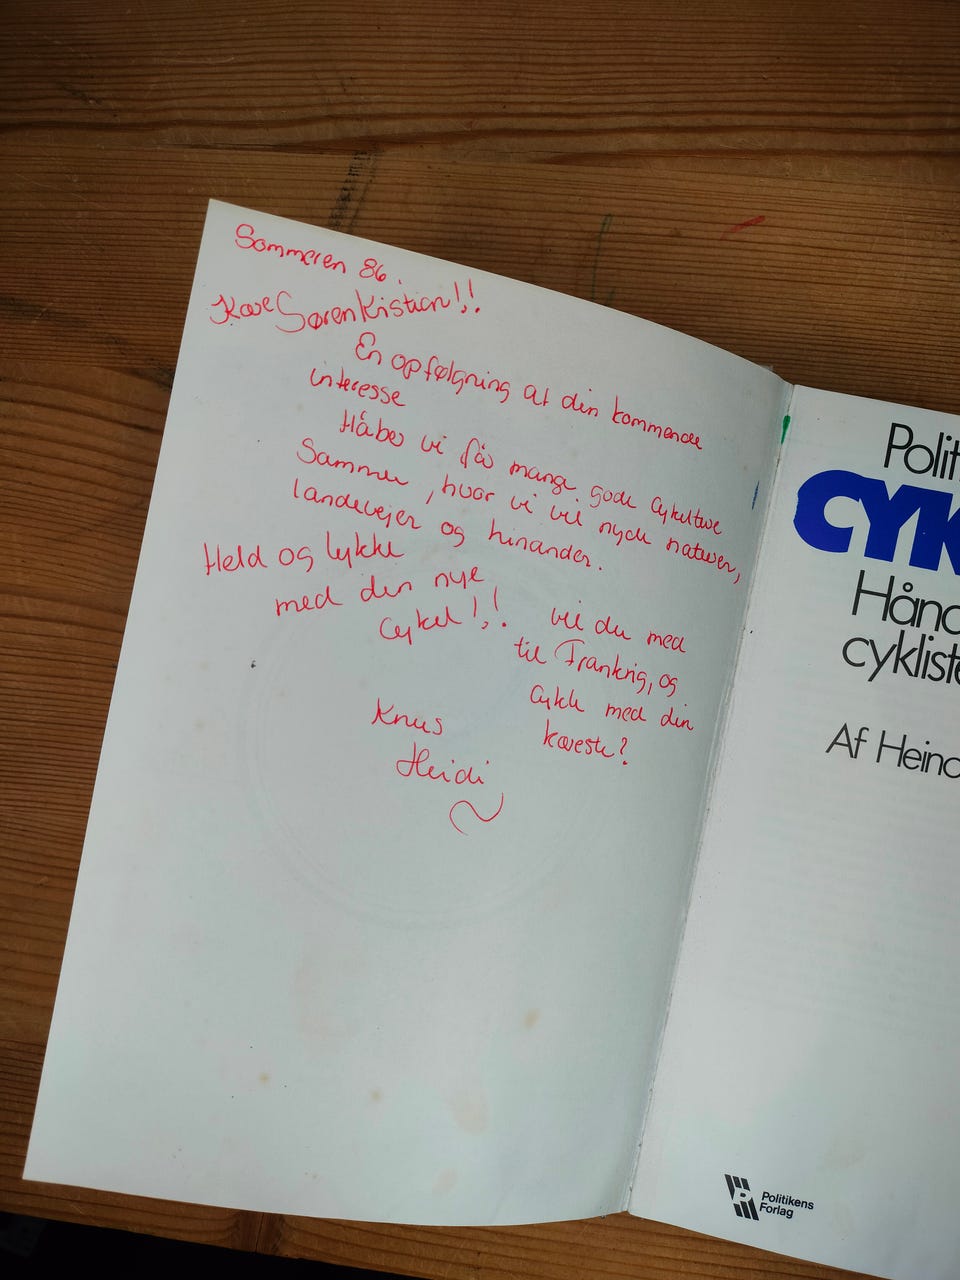 Sommeren 86.
Kære Søren Kristian!!
En opfølgning at din kommende
interesse
Håber vi får mange gode cykelture
Sammen, hvor vi vil nyde naturen,
landevejer og hinanden.
Held og lykke
med den nye
cykel!!
Vil du med
til Frankrig, og
cykle med din
kæreste?
Knus
Heidi
Polit
CYK
Hånd
cykliste
Af Heino
Politikens
Forlag